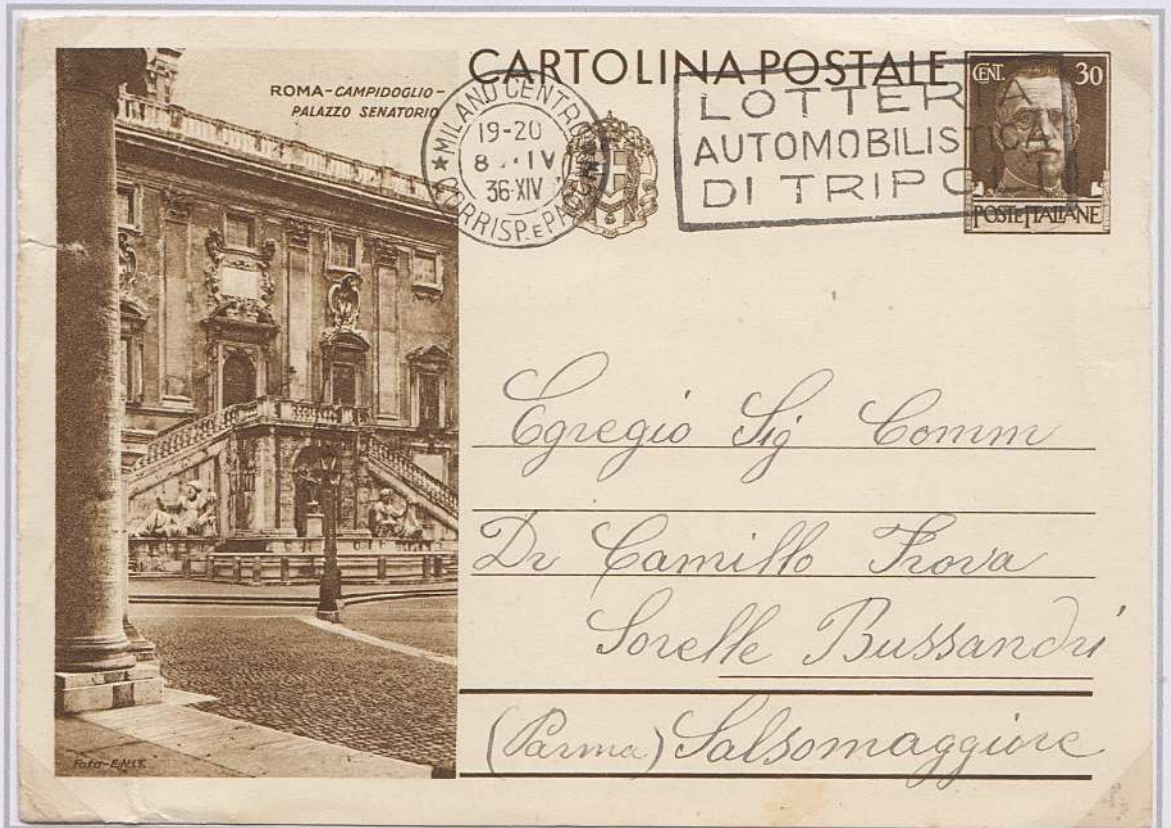 CARTOLINA POSTALE
ROMA-CAMPIDOGLIO-
PALAZZO SENATORIO
★ MILANO CENTRO ★
CORRISP. E PACCHI
19-20
8 IV
36·XIV
LOTTERIA
AUTOMOBILISTICA
DI TRIPOLI
CENT. 30
POSTE ITALIANE
Egregio Sig Comm
Dr Camillo Trova
Sorelle Bussandri
(Parma) Salsomaggiore
Foto-E.N.I.T.